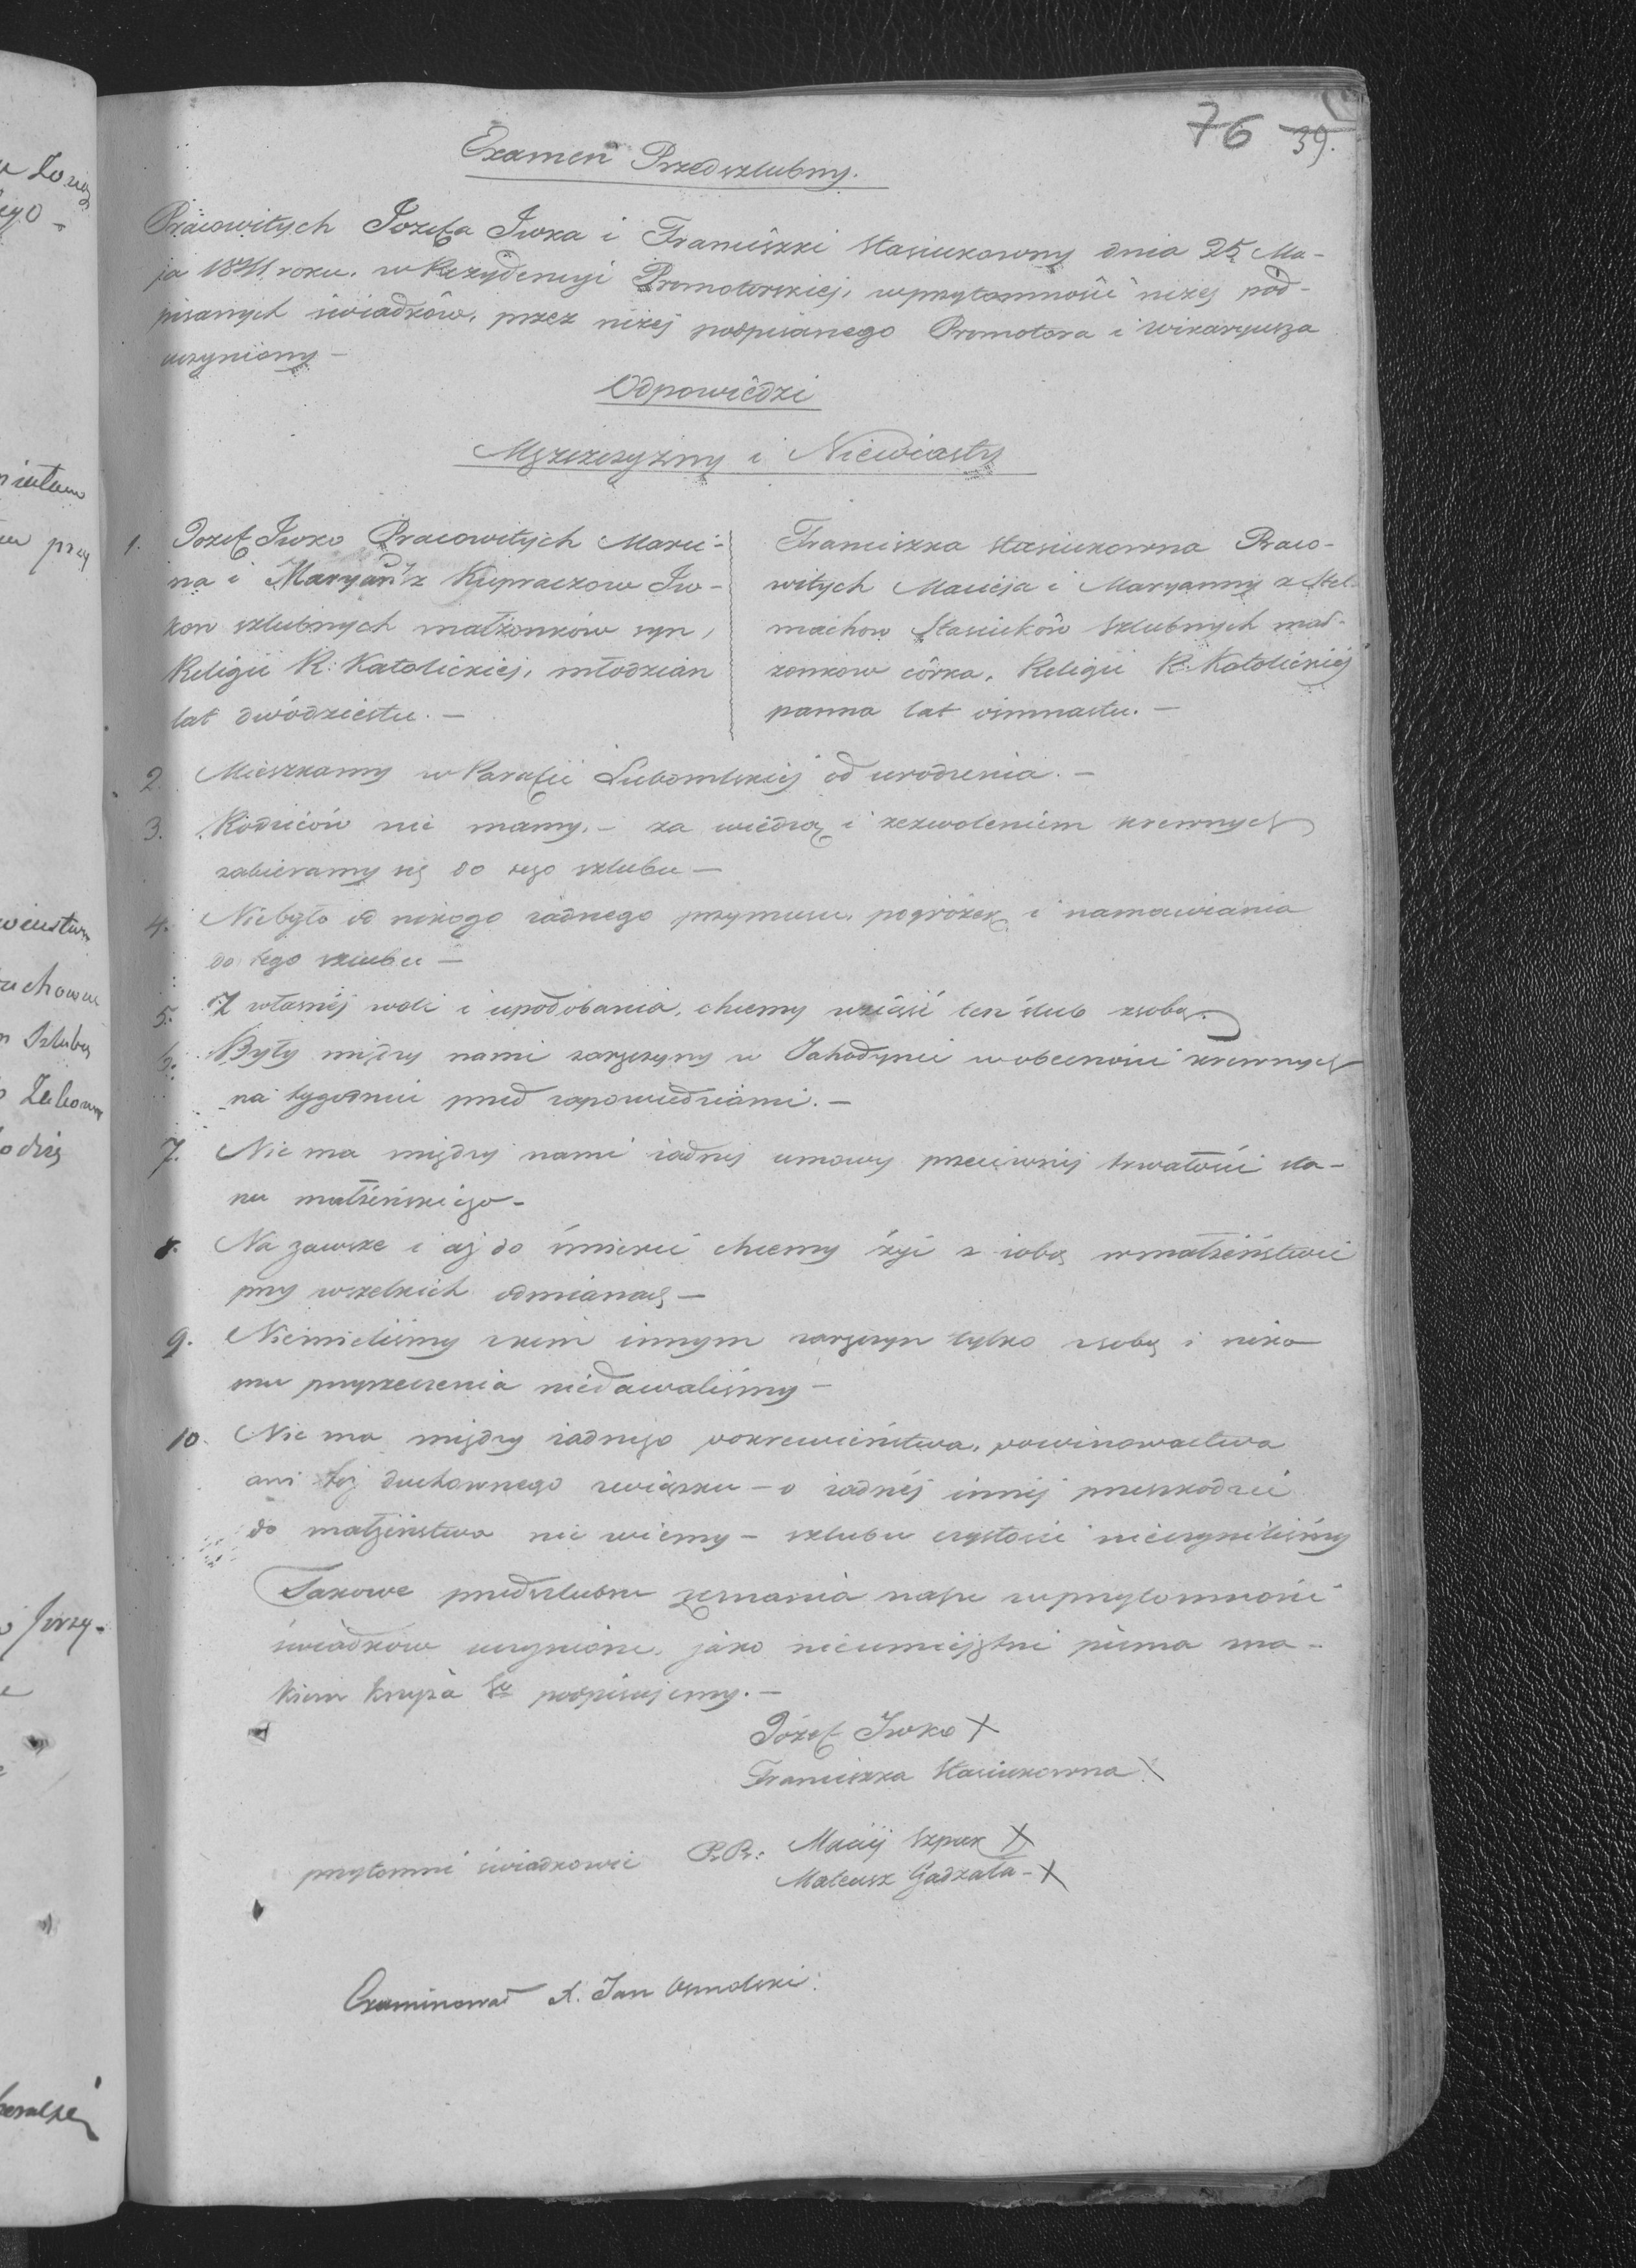 76 39.
Examen Przedszlubny.
Pracowitych Jozefa Iwka i Franciszki Stasiukowny dnia 25 Ma-
ja 1841 roku. w Rezydencyi Promotorskiej, wprzytomności niżej pod-
pisanych świadków, przez niżej podpisanego Promotora i Wikaryusza
uczyniony —
Odpowiedzi
Mężczyzny i Niewiasty
1. Jozef Iwko Pracowitych Marci-
na i Maryan z Kupraczow Iw-
kow szlubnych małżonków syn,
Religii R: Katolickiej, młodzian
lat dwódziestu. —
Franciszka Stasiukowna Praco-
witych Macieja i Maryanny z Stel
machow Stasiuków szlubnych mał-
żonkow córka, Religii R. Katolickiej
panna lat osimnastu. —
2. Mieszkamy w Parafii Lubomlskiej od urodzenia. —
3. Rodziców nie mamy. — za wiedzą i zezwoleniem krewnych
zabieramy się do tego szlubu —
4. Niebyło od nikogo żadnego przymusu, pogróżek i namawiania
do tego szlubu —
5. Z własnéj woli i upodobania, chcemy wziąść ten ślub zsobą.
6. Były między nami zaręczyny w Jahodynie wobecności krewnych
na tygodniu przed zapowiedziami. —
7. Nie ma między nami żadnej umowy przeciwnej trwałości sta-
nu małżeńskiego —
8. Na zawsze i aż do śmierci chcemy żyć z sobą wmałżeństwie
przy wszelkich odmianach —
9. Niemieliśmy zkim innym zaręczyn tylko zsobą i niko
mu przyrzeczenia niedawaliśmy —
10. Nie ma między żadnego pokrewieństwa, powinowactwa
ani też duchownego związku — o żadnéj innej przeszkodzie
do małżeństwa nie wiemy — szlubu czystości nieczyniliśmy
Takowe przedszlubne zeznania nasze wprzytomności
świadków uczynione, jako nieumiejętni pisma zna-
kiem krzyża Sw podpisujemy. —
Józef Iwko X
Franciszka Stasiukowna X
przytomni świadkowie PrPr: Maciej Szpak X
Mateusz Gadzała — X
Examinował X. Jan Osmolski.